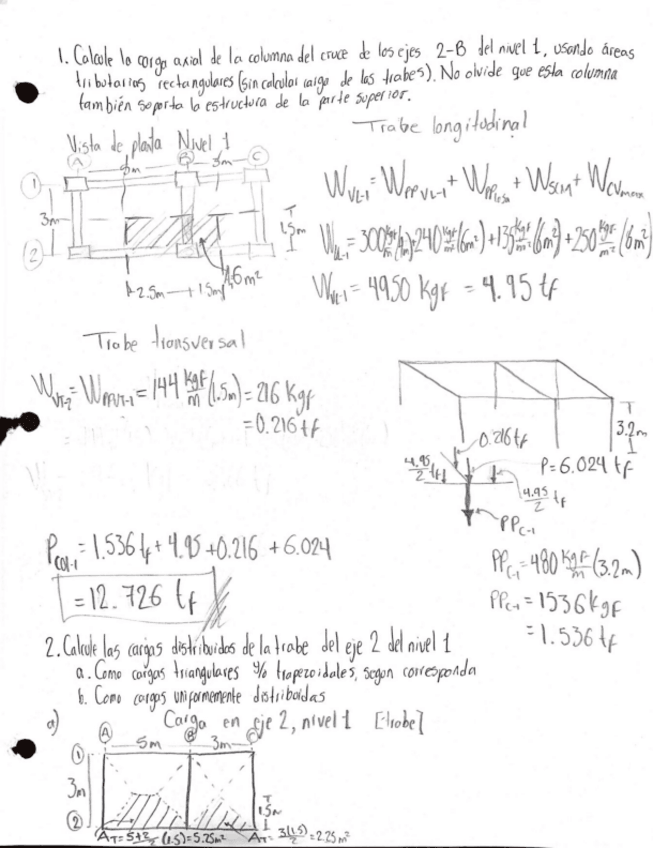 1. Calcule la carga axial de la columna del cruce de los ejes 2-B del nivel 1, usando áreas
tributarias rectangulares (sin calcular carga de las trabes). No olvide que esta columna
también soporta la estructura de la parte superior.
Trabe longitudinal
Vista de planta Nivel 1
A B C
5m 3m
1
3m
2
1.5m
2.5m 1.5m
6m²
W_VL-1 = W_PPVL-1 + W_PPLosa + W_SCM + W_CVmax
W_VL-1 = 300 kgf/m (4m) + 240 kgf/m² (6m²) + 135 kgf/m² (6m²) + 250 kgf/m² (6m²)
W_VL-1 = 4950 kgf = 4.95 tf
Trabe transversal
W_VT-2 = W_PPVT-1 = 144 kgf/m (1.5m) = 216 kgf
= 0.216 tf
3.2m
0.216 tf
4.95/2 tf
P = 6.024 tf
4.95/2 tf
PP_C-1
P_COL-1 = 1.536 tf + 4.95 + 0.216 + 6.024
= 12.726 tf
PP_C-1 = 480 kgf/m (3.2m)
PP_C-1 = 1536 kgf
= 1.536 tf
2. Calcule las cargas distribuidas de la trabe del eje 2 del nivel 1
a. Como cargas triangulares y/o trapezoidales, segun corresponda
b. Como cargas uniformemente distribuidas
a) Carga en eje 2, nivel 1 [trabe]
A B C
5m 3m
1
3m
2
1.5m
A_T = 5+2/2 (1.5) = 5.25m² A_T = 3(1.5)/2 = 2.25m²